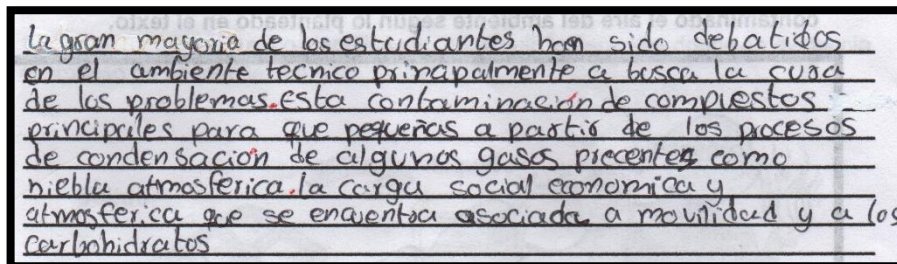 contaminado el aire del ambiente según lo planteado en el texto.
la gran mayoria de los estudiantes han sido debatidos
en el ambiente tecnico principalmente a busca la cura
de los problemas.esta contaminación de compuestos
principales para que pequeñas a partir de los procesos
de condensación de algunos gases precentes como
niebla atmosferica.la carga social economica y
atmosferica que se encuentra asociada a movilidad y a los
carbohidratos